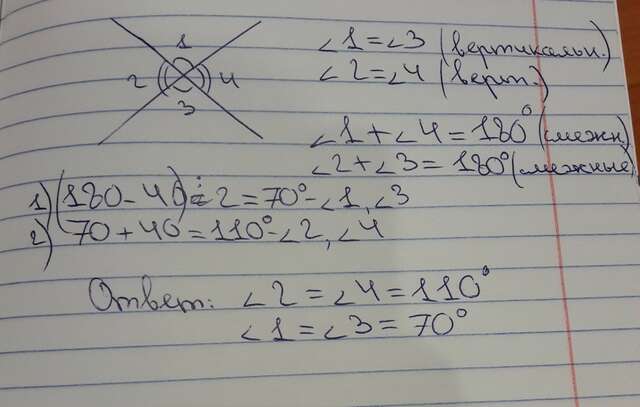 1
2 4
3
∠1=∠3 (вертикальн.)
∠2=∠4 (верт.)
∠1+∠4=180° (смежн)
∠2+∠3=180° (смежные)
1) (180-40):2=70°-∠1,∠3
2) 70+40=110°-∠2,∠4
Ответ: ∠2=∠4=110°
∠1=∠3=70°